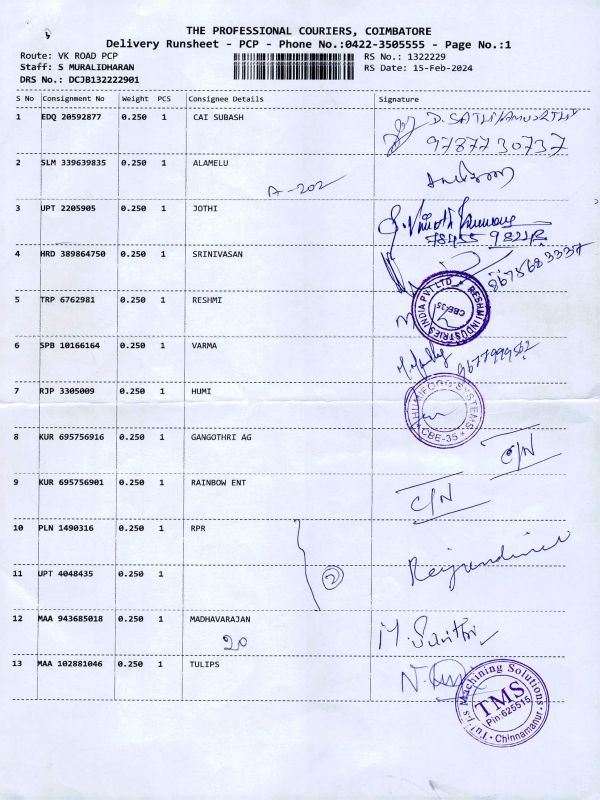 THE PROFESSIONAL COURIERS, COIMBATORE
Delivery Runsheet - PCP - Phone No.:0422-3505555 - Page No.:1
Route: VK ROAD PCP RS No.: 1322229
Staff: S MURALIDHARAN RS Date: 15-Feb-2024
DRS No.: DCJB132222901
S No Consignment No Weight PCS Consignee Details Signature
1 EDQ 20592877 0.250 1 CAI SUBASH
9787730737
2 SLM 339639835 0.250 1 ALAMELU
A-202
3 UPT 2205905 0.250 1 JOTHI
4 HRD 389864750 0.250 1 SRINIVASAN
8675683337
5 TRP 6762981 0.250 1 RESHMI
RESHMI INDUSTRIES INDIA PVT LTD
CBE-35
6 SPB 10166164 0.250 1 VARMA
7 RJP 3305009 0.250 1 HUMI
HUMIFOG SYSTEMS
CBE-35
8 KUR 695756916 0.250 1 GANGOTHRI AG
C/N
9 KUR 695756901 0.250 1 RAINBOW ENT
C/N
10 PLN 1490316 0.250 1 RPR
2
11 UPT 4048435 0.250 1
12 MAA 943685018 0.250 1 MADHAVARAJAN
20
M. Santhi
13 MAA 102881046 0.250 1 TULIPS
Machining Solutions
TMS
Pin:625515
Chinnamanur